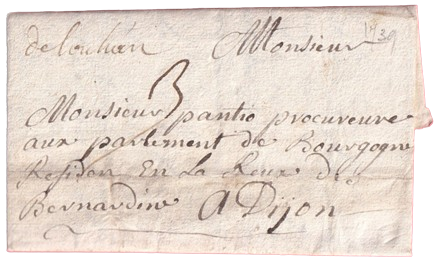 delouhan Monsieur 1739
3
Monsieur pantio procureure
aux parlement de Bourgogne
Residen En La Reux des
Bernardine A Dijon